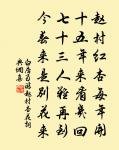 赵村红杏每年开
十五年来看几回
七十三人难再到
今春来是别花来
白居易游赵村杏花诗